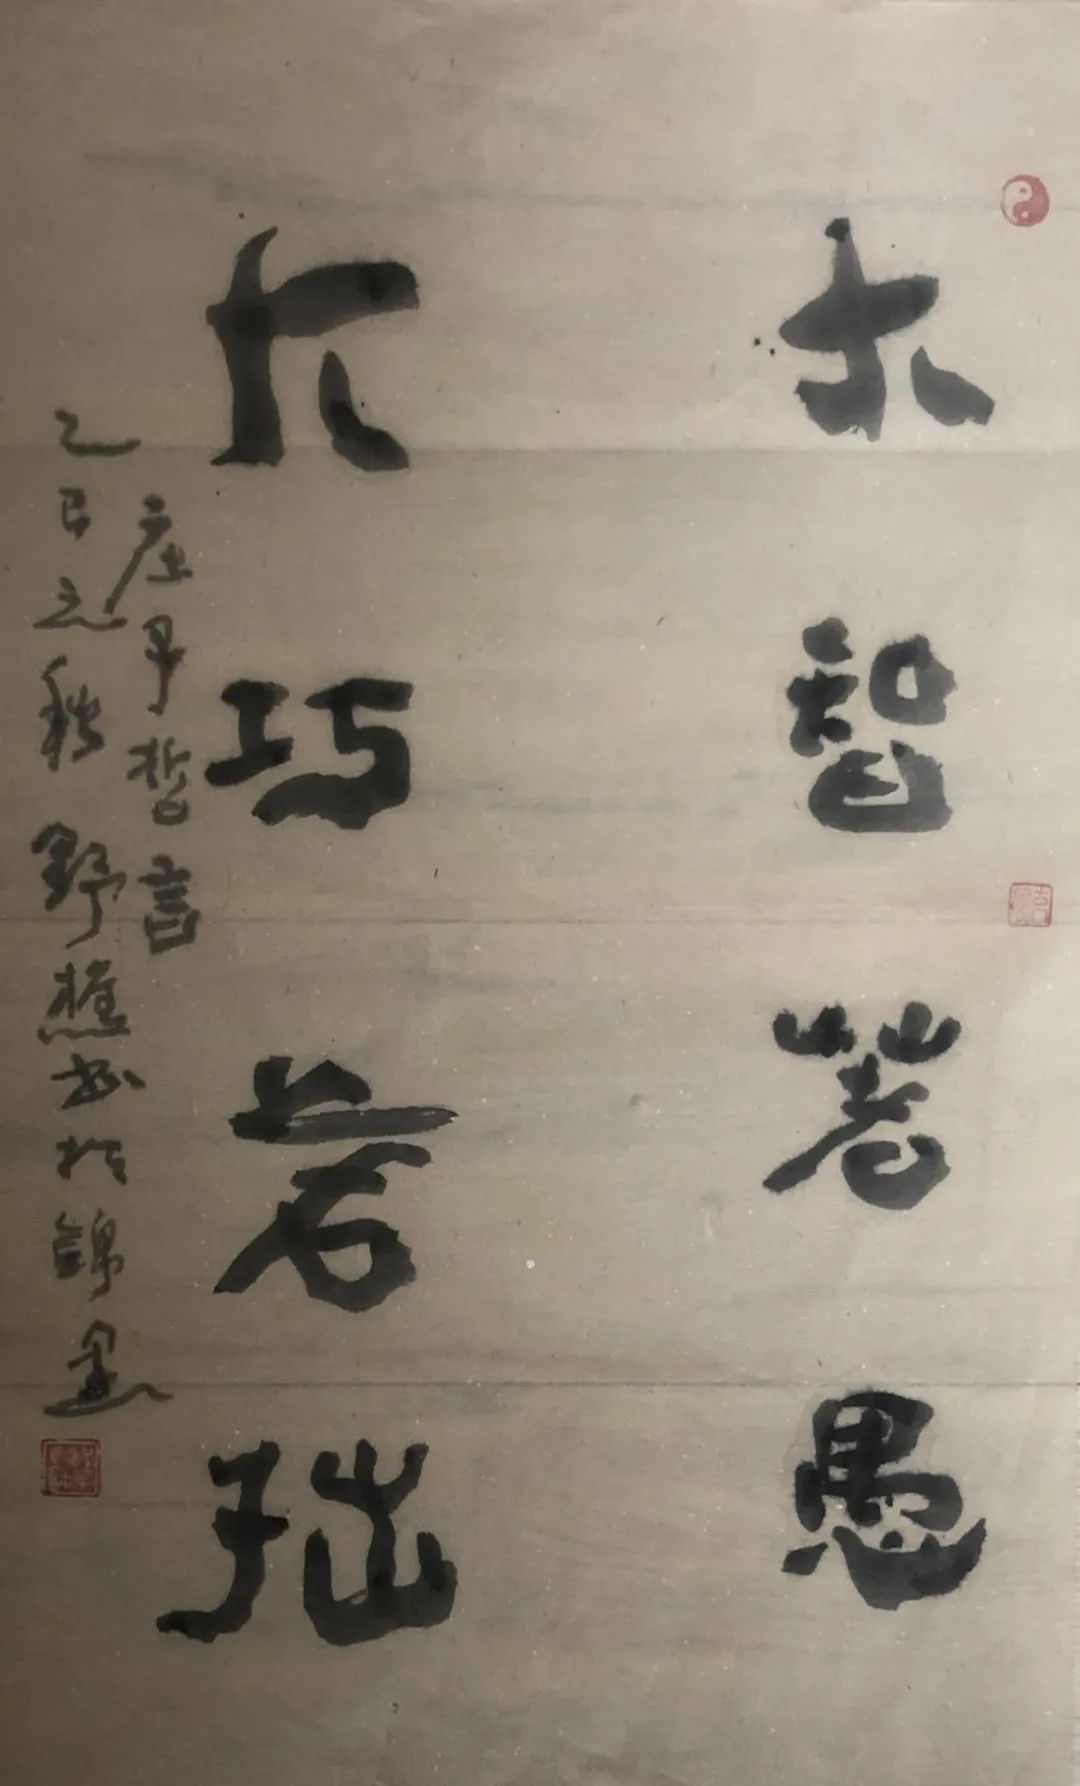 大智若愚
大巧若拙
庄子哲言
乙巳之秋野樵书于锦里